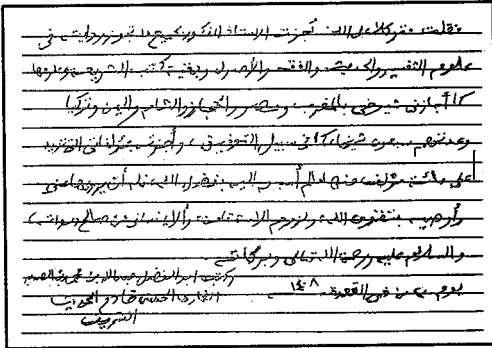 فقلت متوكلا على الله: أجزت الأستاذ المذكور بجميع ما تجوز روايته في
علوم التفسير والحديث والفقه والأصول وبقية كتب الشريعة وعلومها
كما أجازني شيوخي بالمغرب ومصر والحجاز والشام واليمن وتركيا
وعدتهم سبعون شيخا، كما في سبيل التوفيق، وأجزته بمؤلفاتي التي تزيد
على مائة مؤلف، منها ما لم أسبق إليه بفضل الله، فله أن يرويها عني
وأوصيه بتقوى الله ولزوم الاستقامة، وألا ينساني من صالح دعواته،
والسلام عليه ورحمة الله تعالى وبركاته
وكتب أبو الفضل عبد الله بن محمد بن الصديق
يوم من ذي القعدة ١٤٠٨ الغماري الحسني خادم الحديث
الشريف